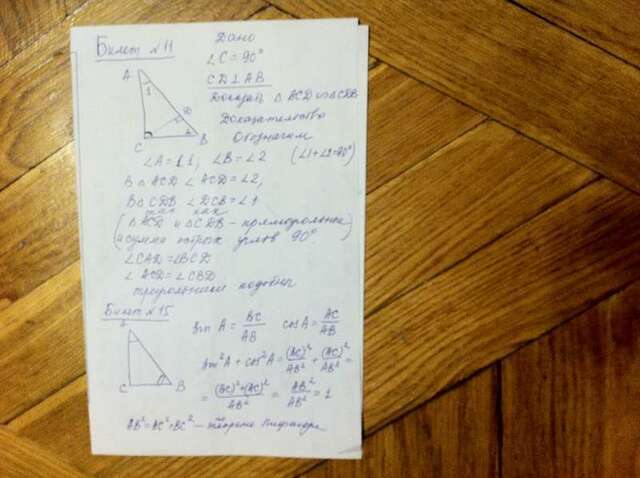 Билет №11
Дано
∠C = 90°
CD ⊥ AB
A
1
D
2
C
B
Доказать △ ACD ∾ △CDB
Доказательство
Обозначим
∠A = ∠1, ∠B = ∠2 (∠1+∠2=90°)
В △ ACD ∠ ACD = ∠2,
В △ CDB ∠ DCB = ∠1
так как
(△ ACD и △ CDB – прямоугольные
и сумма острых углов 90°)
∠CAD = ∠BCD
∠ ACD = ∠CBD
треугольники подобны
Билет №15
A
C
B
sin A = BC/AB cosA = AC/AB
sin²A + cos²A = (BC)²/AB² + (AC)²/AB² =
= (BC)²+(AC)²/AB² = AB²/AB² = 1
AB² = AC² + BC² – теорема Пифагора